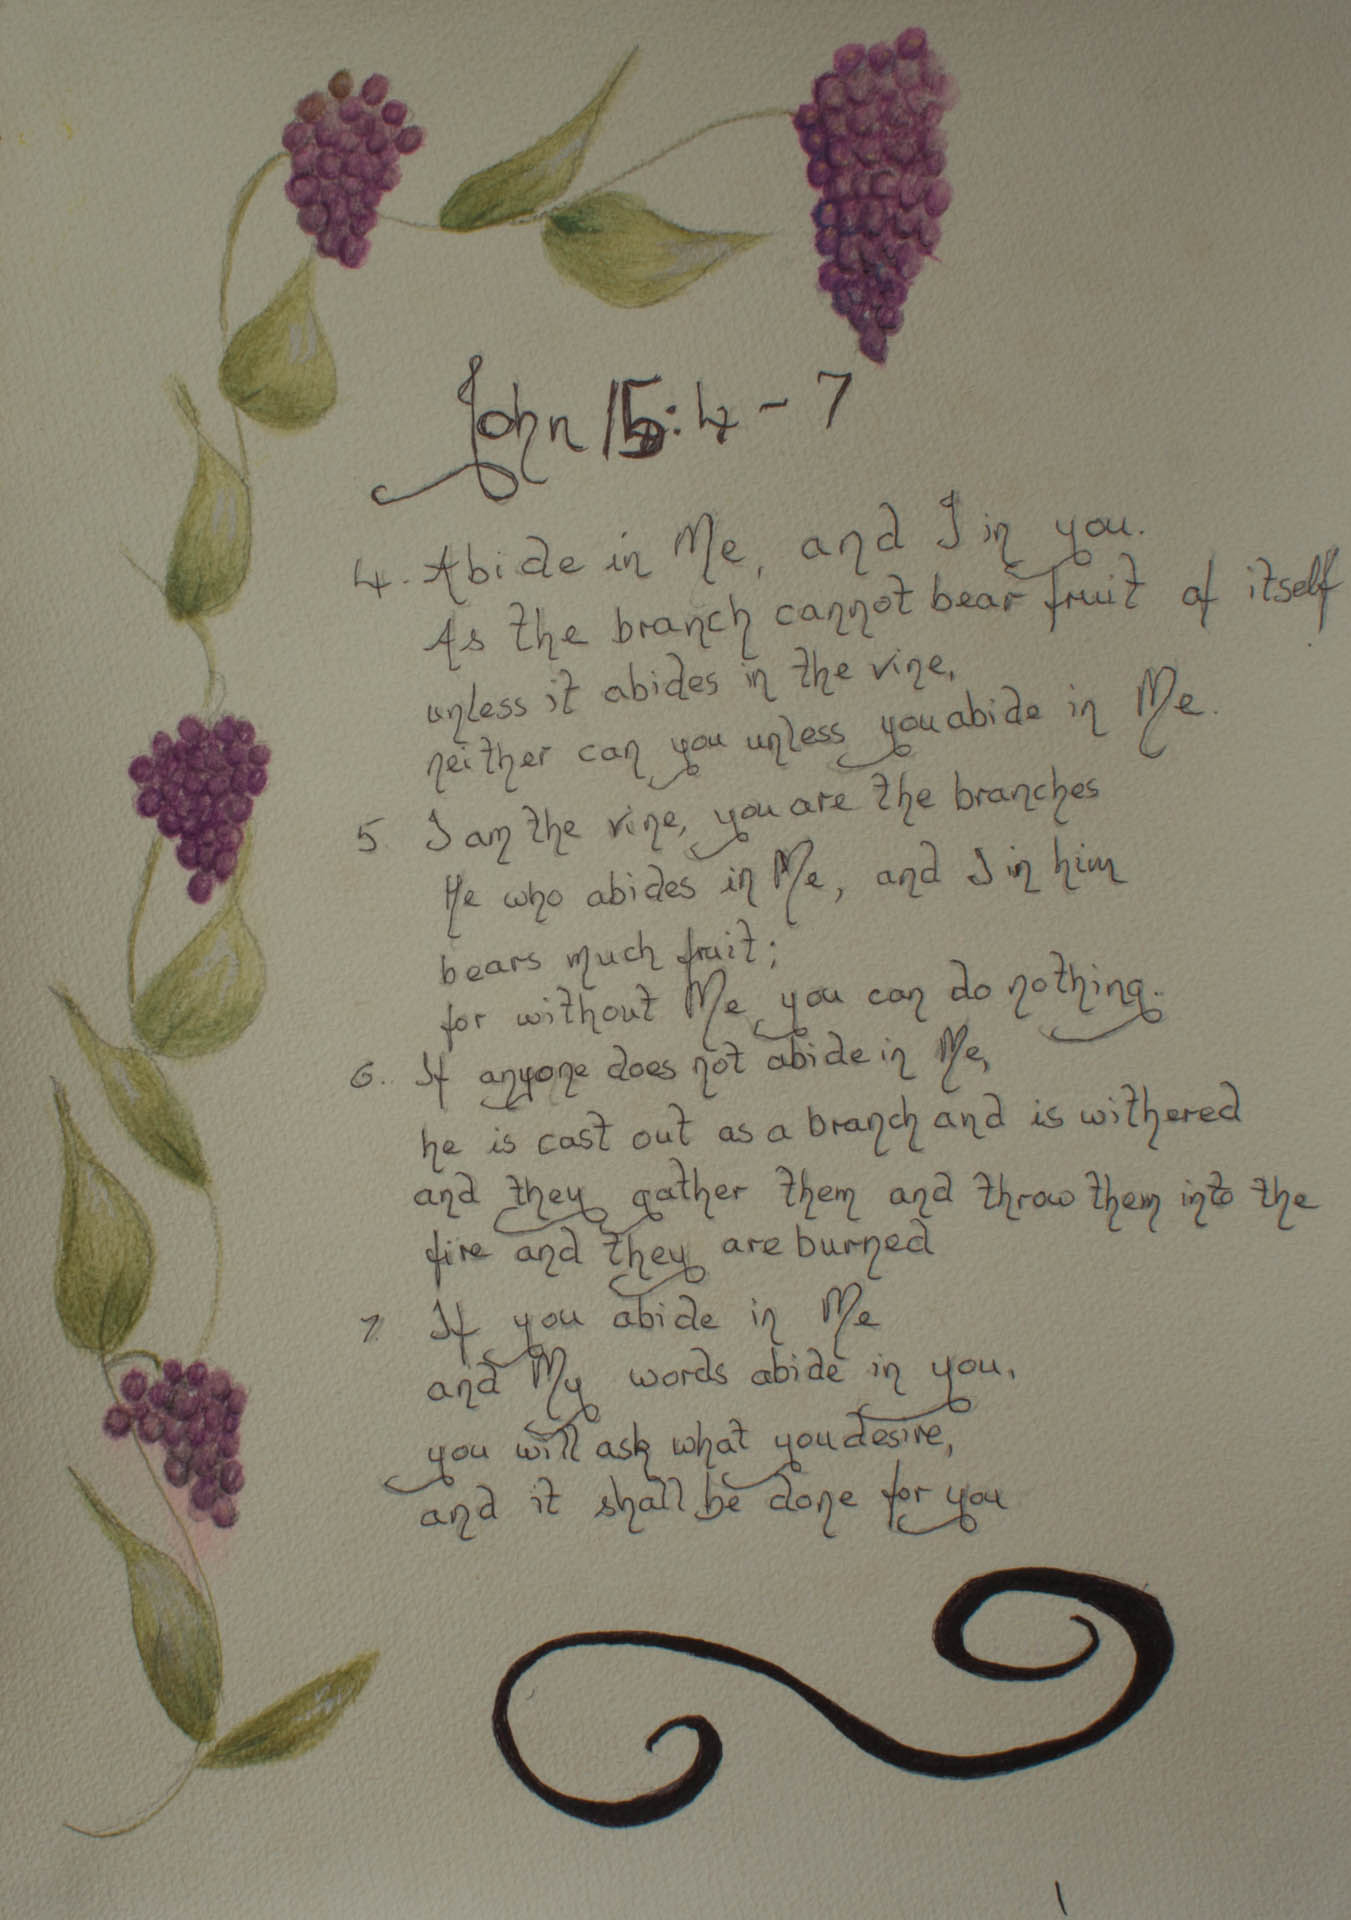 John 15:4-7
4. Abide in Me, and I in you.
As the branch cannot bear fruit of itself
unless it abides in the vine,
neither can you unless you abide in Me.
5. I am the vine, you are the branches
He who abides in Me, and I in him
bears much fruit;
for without Me you can do nothing.
6. If anyone does not abide in Me,
he is cast out as a branch and is withered
and they gather them and throw them into the
fire and they are burned
7. If you abide in Me
and My words abide in you,
you will ask what you desire,
and it shall be done for you